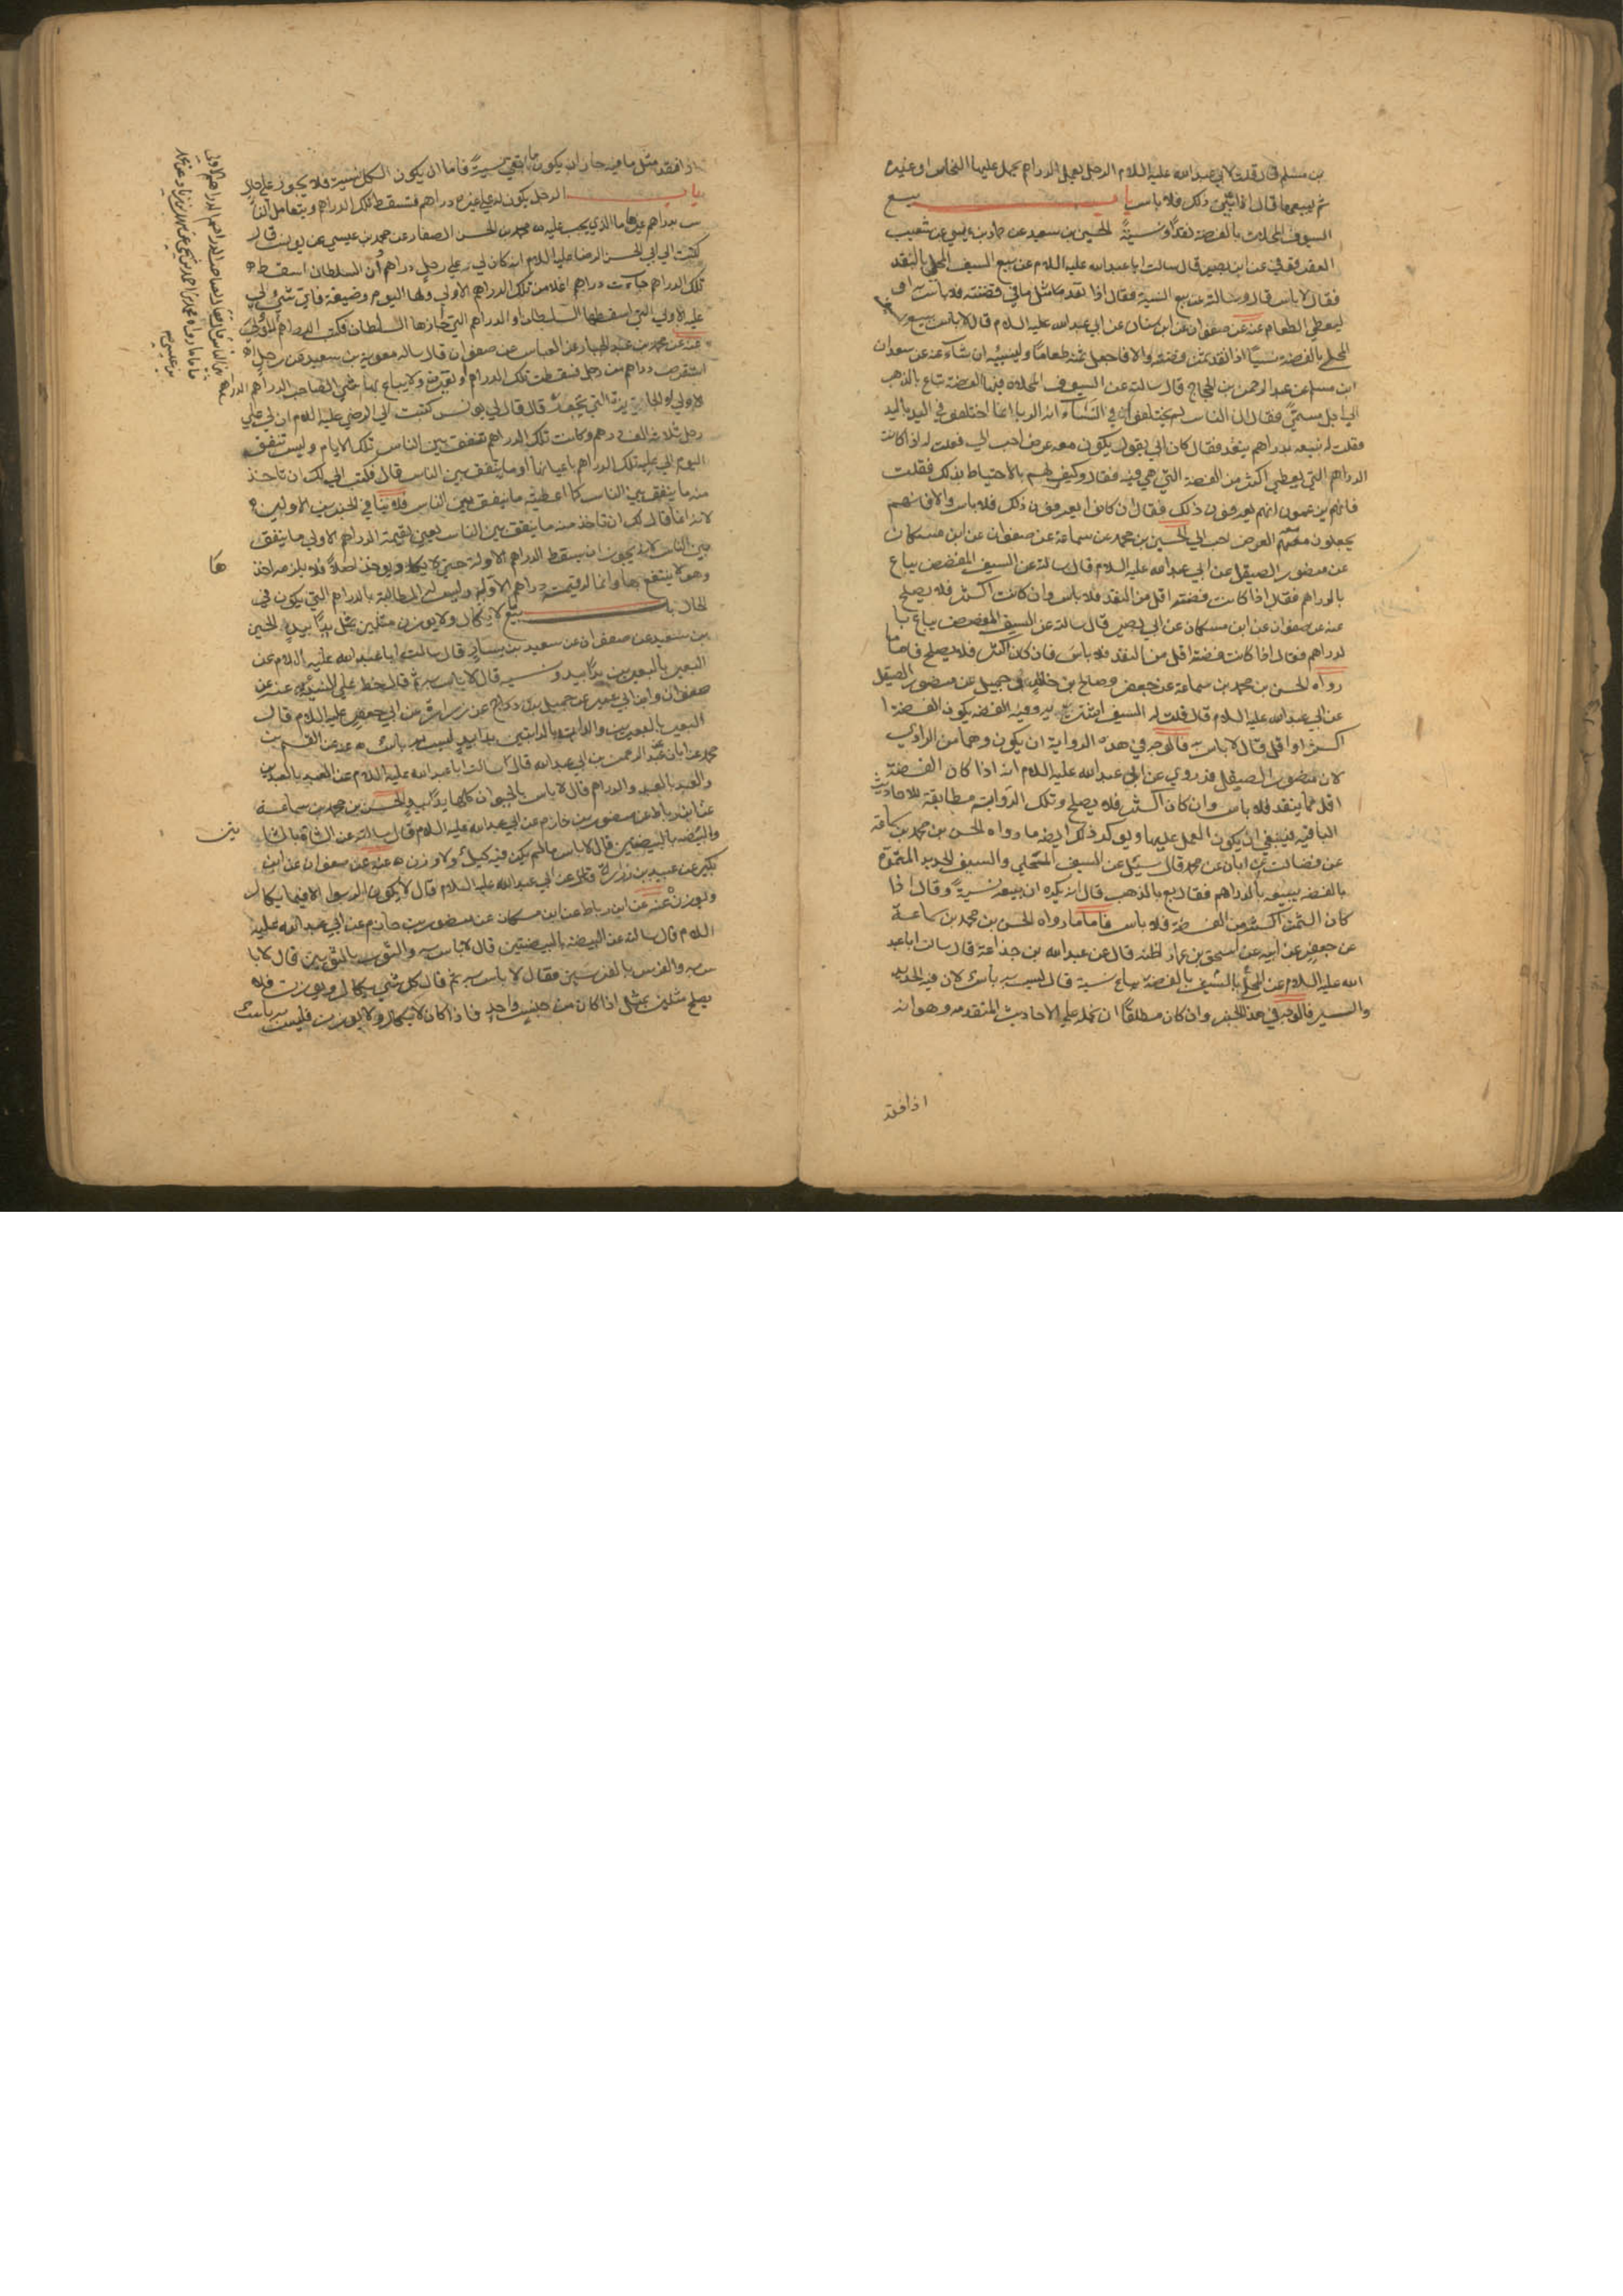 بن مسلم قال قلت لابي عبد الله عليه السلام الرجل يعمل الدراهم يحمل عليها النحاس او غيره
ثم يبيعها قال اذا بين ذلك فلا باس باب بيع
السيوف المحلاة بالفضة نقدا ونسية الحسين بن سعيد عن حماد بن عيسى عن شعيب
العقرقوفي عن ابي بصير قال سالت ابا عبد الله عليه السلام عن بيع السيف المحلى بالنقد
فقال لا باس قال وسالته عن بيع النسية فقال اذا نقد مثل ما في فضته فلا باس به او
ليعطي الطعام عنه عن صفوان عن ابن سنان عن ابي عبد الله عليه السلام قال لا باس ببيع السيف
المحلى بالفضة نسيا اذا نقد ثمن فضته والا فاجعل ثمنه طعاما ولينسئه ان شاء عنه عن سعدان
ابن مسلم عن عبد الرحمن بن الحجاج قال سالته عن السيوف المحلاة فيها الفضة تباع بالذهب
الى اجل مسمى فقال ان الناس لم يختلفوا في النساء انه الربا انما اختلفوا في اليد باليد
فقلت له نبيعه بدراهم ينقد فقال كان ابي يقول يكون معه عرض احب الي فقلت له اذا كانت
الدراهم التي يعطي اكثر من الفضة التي هي فيه فقال وكيف لهم بالاحتياط بذلك فقلت
فانهم يزعمون انهم يعرفون ذلك فقال ان كانوا يعرفون ذلك فلا باس والا فانهم
يجعلون معهم العرض احب الي الحسين بن محمد عن سماعة عن صفوان عن ابن مسكان
عن منصور الصيقل عن ابي عبد الله عليه السلام قال سالته عن السيف المفضض يباع
بالدراهم فقال اذا كانت فضته اقل من النقد فلا باس وان كانت اكثر فلا يصلح
عنه عن صفوان عن ابن مسكان عن ابي بصير قال سالته عن السيف المفضض يباع با
لدراهم فقال اذا كانت فضته اقل من النقد فلا باس فان كان اكثر فلا يصلح فاما ما
رواه الحسن بن محمد بن سماعة عن جعفر وصالح بن خالد عن جميل عن منصور الصيقل
عن ابي عبد الله عليه السلام قال قلت له السيف اشتريه وفيه الفضة يكون الفضة ا
كثر او اقل قال لا باس به فالوجه في هذه الرواية ان يكون وهما من الراوي
لان منصور الصيقل قد روى عن ابي عبد الله عليه السلام انه اذا كان الفضة
اقل مما ينقد فلا باس وان كان اكثر فلا يصلح وتلك الرواية مطابقة للاحاديث
الباقية فينبغي ان يكون العمل عليها ويوكد ذلك ايضا ما رواه الحسن بن محمد بن سماعة
عن فضالة عن ابان عن محمد قال سئل عن السيف المحلى والسيف الحديد المموه
بالفضة يبيعه بالدراهم فقال بع بالذهب قال انه يكره ان يبيعه نسية وقال اذا
كان الثمن اكثر من الفضة فلا باس فاما ما رواه الحسن بن محمد بن سماعة
عن جعفر عن ابيه عن اسحق بن عمار اظنه قال عن عبد الله بن جذاعة قال سالت ابا عبد
الله عليه السلام عن المحلى بالسيف بالفضة يباع نسية قال ليس به باس لان فيه الحديد
والسير فالوجه في هذا الخبر وان كان مطلقا ان نحمله على الاحاديث المتقدمة وهو انه
اذا نقد
اذا نقد مثل ما فيه جاز ان يكون ما بقي نسية فاما ان يكون الكل نسية فلا يجوز على حال
باب الرجل يكون له على غيره دراهم فتسقط تلك الدراهم ويتعامل النا
س بدراهم غيرها ما الذي يجب عليه محمد بن الحسن الصفار عن محمد بن عيسى عن يونس قال
كتبت الى ابي الحسن الرضا عليه السلام انه كان لي على رجل دراهم وان السلطان اسقط
تلك الدراهم وجاءت دراهم اغلا من تلك الدراهم الاولى ولها اليوم وضيعة فاي شيء لي
عليه الاولى التي اسقطها السلطان او الدراهم التي اجازها السلطان فكتب الدراهم الاولى
عنه عن محمد بن عبد الجبار عن العباس عن صفوان قال ساله معوية بن سعيد عن رجل
استقرض دراهم من رجل فسقطت تلك الدراهم وتغيرت ولا يباع بها شيء الصاحب الدراهم الدراهم
الاولى او الجايزة التي تجوز قال قال لي يونس كتبت الى الرضا عليه السلام ان لي على
رجل ثلاثة الف درهم وكانت تلك الدراهم تنفق بين الناس تلك الايام وليست تنفق
اليوم الي عليه تلك الدراهم باعيانها او ما ينفق بين الناس قال فكتب الي لك ان تاخذ
منه ما ينفق بين الناس كما اعطيته ما ينفق بين الناس فلا ينافي الخبرين الاولين
لانه انما قال لك ان تاخذ منه ما ينفق بين الناس يعني بقيمة الدراهم الاولى ما ينفق
بين الناس لانه يجوز ان يسقط الدراهم الاولة حتى لا يكاد يوخذ اصلا فلا يلزمه اخذ
ها
وهو لا ينتفع بها وانما له قيمة دراهم الاولة وليس له المطالبة بالدراهم التي يكون في
الحال باب بيع لا يكال ولا يوزن مثلين بمثل يدا بيد الحسين
بن سعيد عن صفوان عن سعيد بن يسار قال سالت ابا عبد الله عليه السلام عن
البعير بالبعيرين يدا بيد ونسية قال لا باس به ثم قال خط على النسية عنه عن
صفوان وابن ابي عمير عن جميل بن دراج عن زرارة عن ابي جعفر عليه السلام قال
البعير بالبعيرين والدابة بالدابتين يدا بيد ليس به باس عنه عن القسم بن
محمد عن ابان عن عبد الرحمن بن ابي عبد الله قال سالت ابا عبد الله عليه السلام عن العبد بالعبدين
والعبد بالعبد والدراهم قال لا باس بالحيوان كلها يدا بيد الحسن بن محمد بن سماعة
عن ابن رباط عن منصور بن حازم عن ابي عبد الله عليه السلام قال سالته عن الشاة بالشا
تين
والبيضة بالبيضتين قال لا باس ما لم يكن فيه كيل ولا وزن عنه عن صفوان عن ابن
بكير عن عبيد بن زرارة عن ابي عبد الله عليه السلام قال لا يكون الربوا الا فيما يكال
ويوزن عنه عن ابن رباط عن ابن مسكان عن منصور بن حازم عن ابي عبد الله عليه
السلام قال سالته عن البيضة بالبيضتين قال لا باس به والثوب بالثوبين قال لا با
س به والفرس بالفرسين فقال لا باس به ثم قال كل شيء يكال او يوزن فلا
يصلح مثلين بمثل اذا كان من جنس واحد فاذا كان لا يكال ولا يوزن فليس به باس